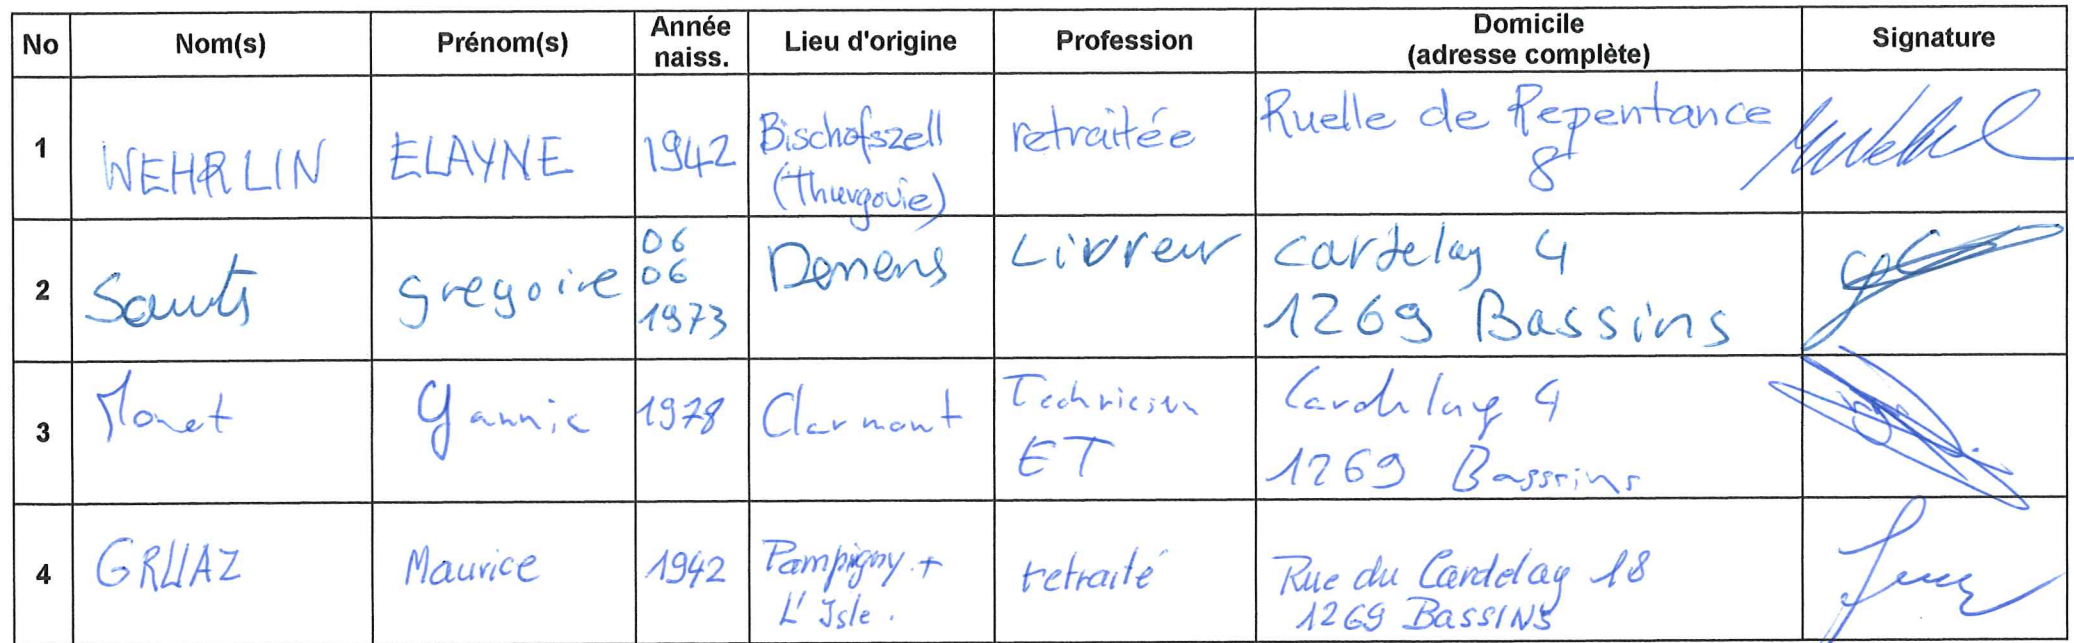 No Nom(s) Prénom(s) Année naiss. Lieu d'origine Profession Domicile (adresse complète) Signature
1 WEHRLIN ELAYNE 1942 Bischofszell (Thurgovie) retraitée Ruelle de Repentance 8
2 gregoire 06 06 1973 Livreur cardelay 4 1269 Bassins
3 Monet Yannic 1978 Clarmont Technicien ET Cardelay 4 1269 Bassins
4 GRUAZ Maurice 1942 Pampigny + L'Isle. retraité Rue du Cardelay 18 1269 BASSINS